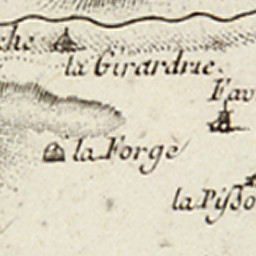 che
la Girardrie.
Fav
la Forge
la Pisso